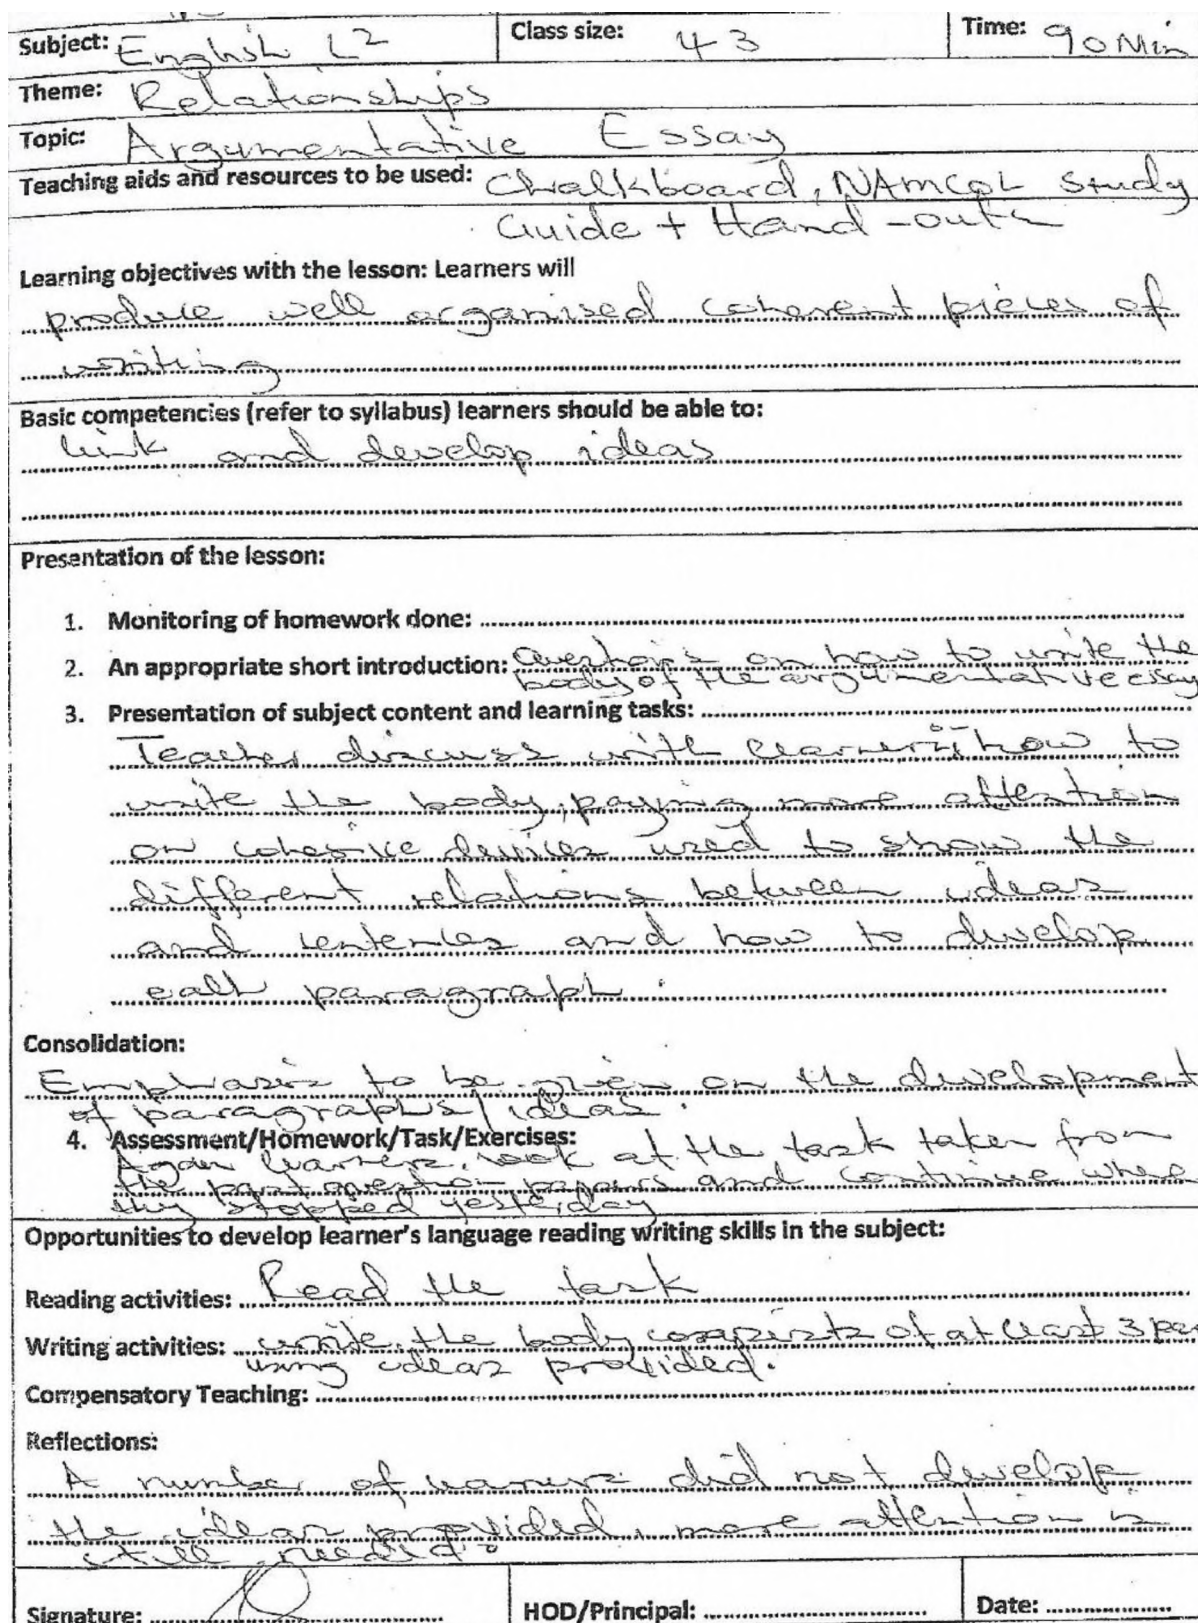 Subject: English L2 Class size: 43 Time: 90 Min
Theme: Relationships
Topic: Argumentative Essay
Teaching aids and resources to be used: Chalkboard, NAMCOL Study
Guide + Hand-outs
Learning objectives with the lesson: Learners will
produce well organised coherent pieces of
writing
Basic competencies (refer to syllabus) learners should be able to:
link and develop ideas
Presentation of the lesson:
1. Monitoring of homework done:
2. An appropriate short introduction: Questions on how to write the
body of the argumentative essay
3. Presentation of subject content and learning tasks:
Teacher discuss with learners on how to
write the body, paying more attention
on cohesive devices used to show the
different relations between ideas
and sentences and how to develop
each paragraph.
Consolidation:
Emphasis to be given on the development
of paragraphs/ideas.
4. Assessment/Homework/Task/Exercises:
Again learners, look at the task taken from
the past question papers and continue where
they stopped yesterday
Opportunities to develop learner's language reading writing skills in the subject:
Reading activities: Read the task
Writing activities: write the body of at least 3 par
using ideas provided.
Compensatory Teaching:
Reflections:
A number of learners did not develop
the ideas provided, more attention is
still needed.
Signature: HOD/Principal: Date: